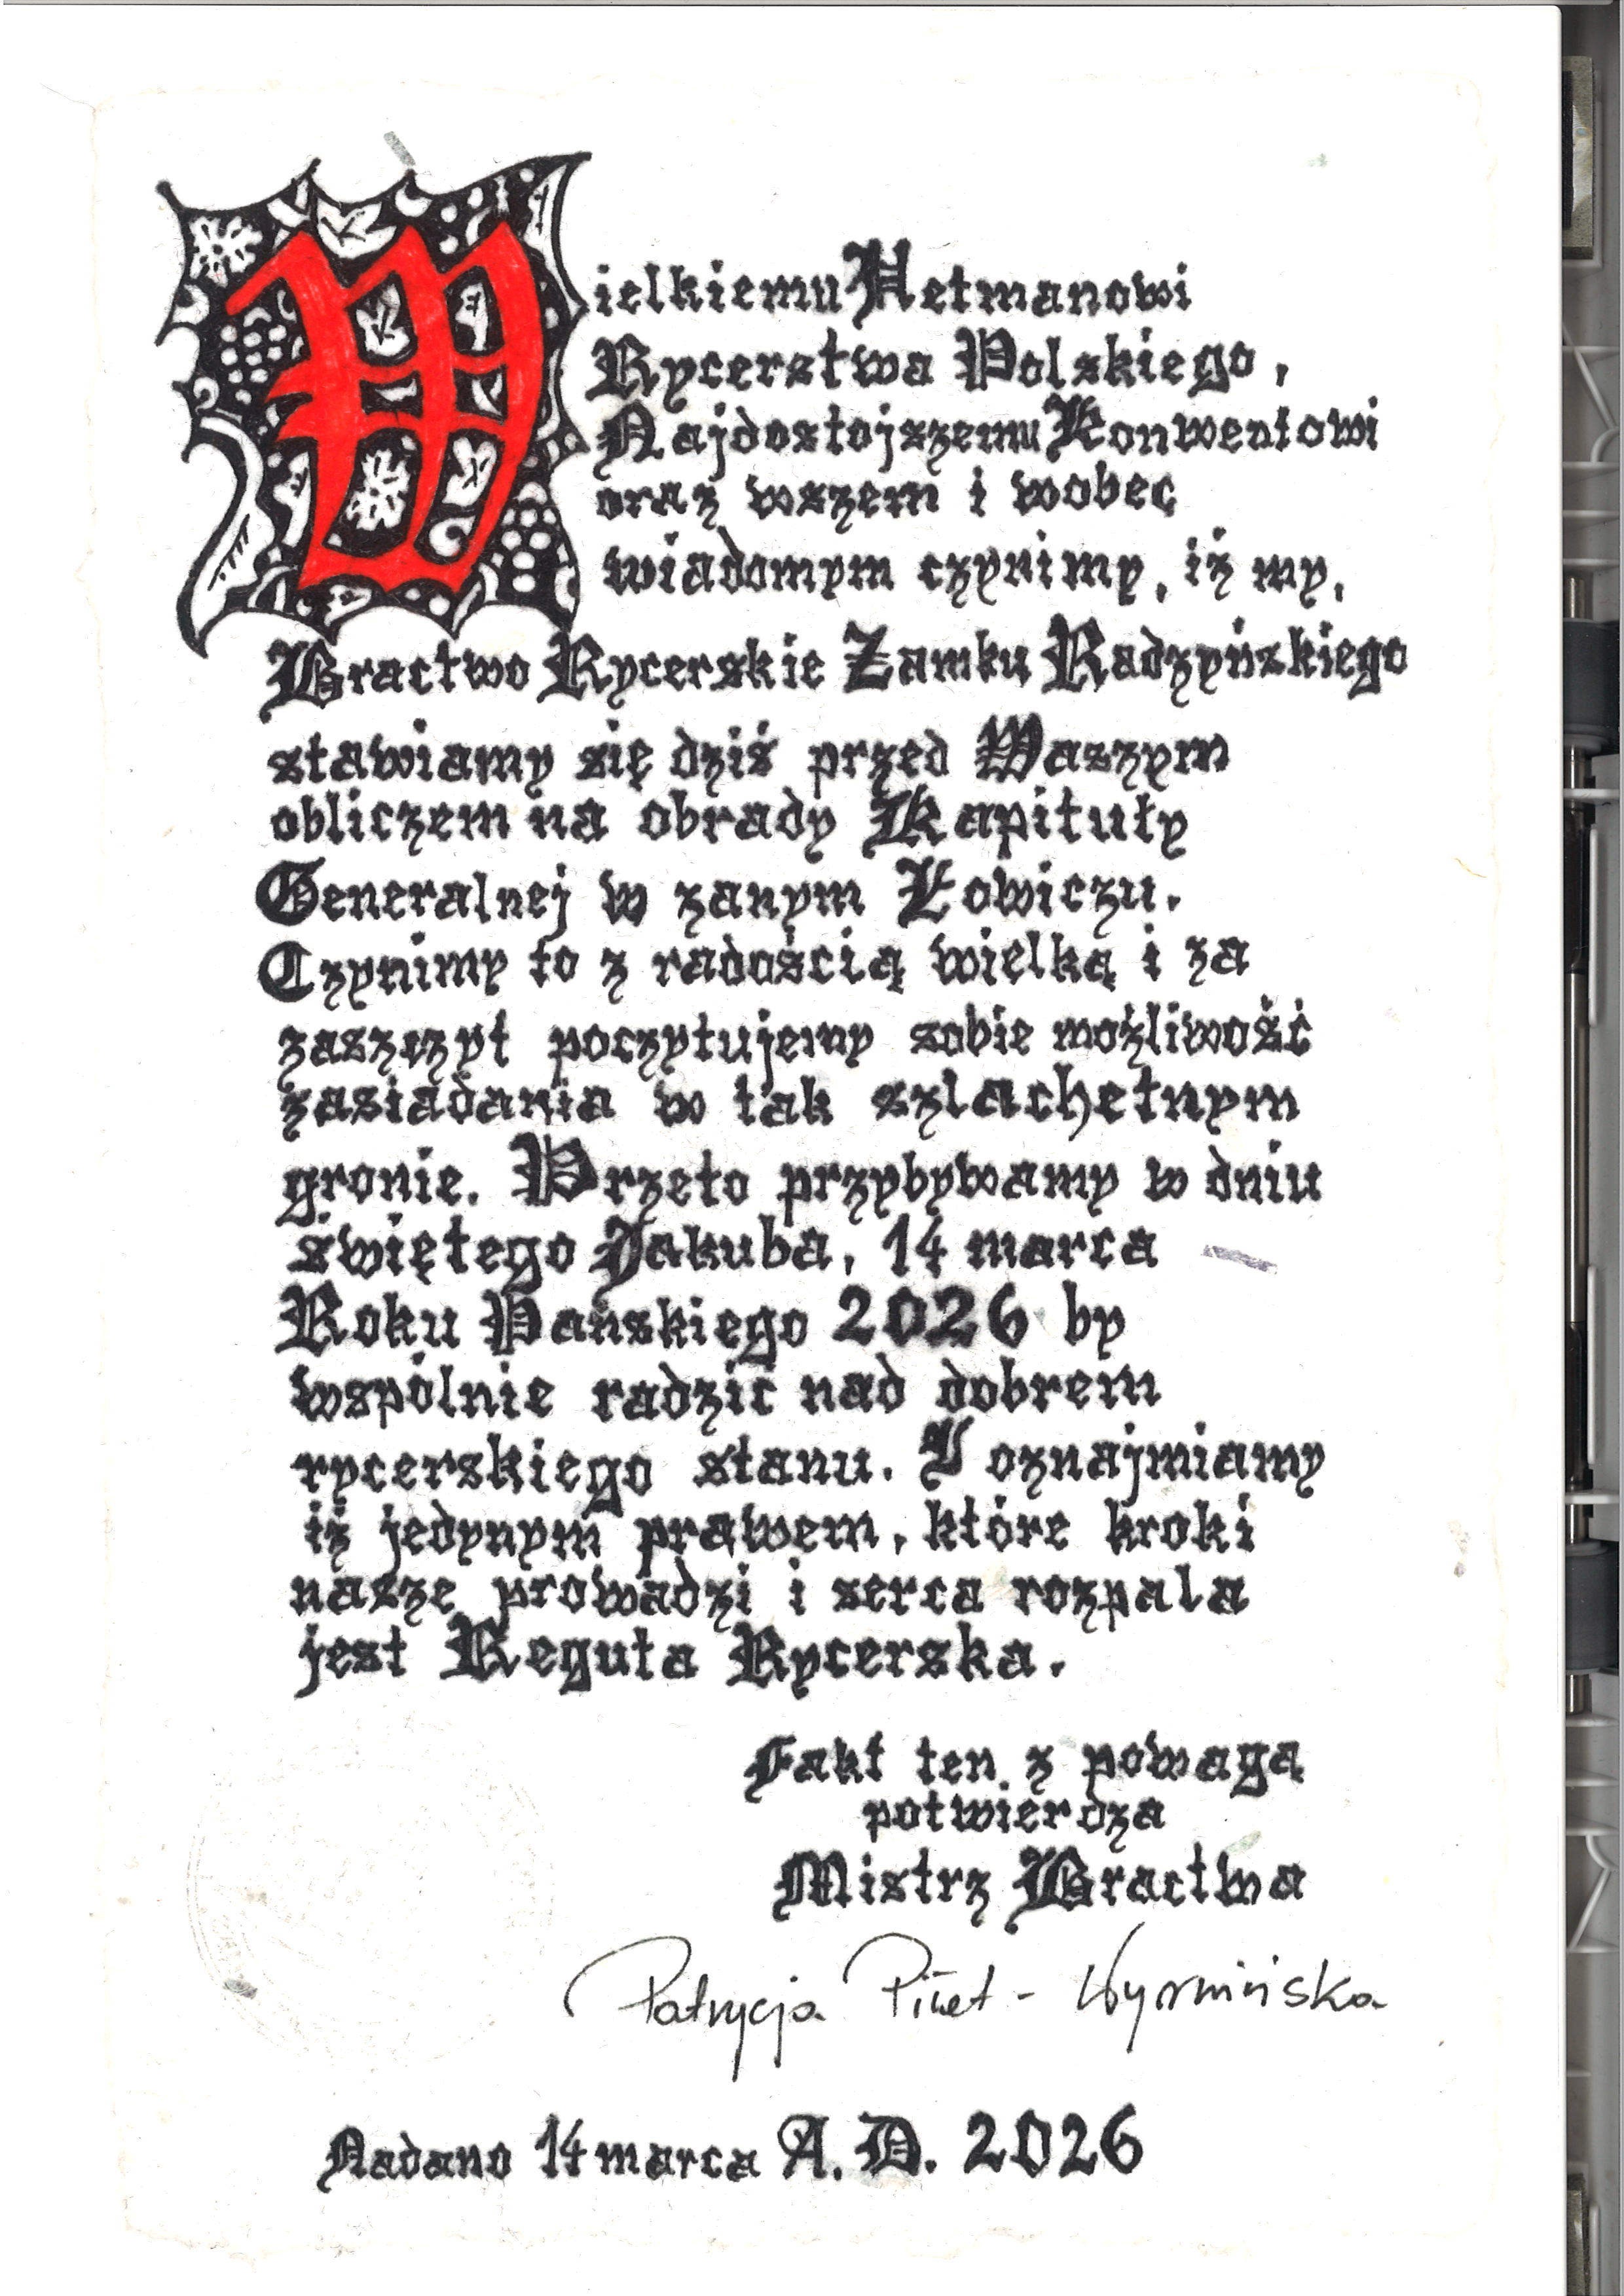 Wielkiemu Hetmanowi
Rycerstwa Polskiego,
Najdostojszemu Konwentowi
oraz wszem i wobec
wiadomym czynimy, iż my,
Bractwo Rycerskie Zamku Radzyńskiego
stawiamy się dziś przed Waszym
obliczem na obrady Kapituły
Generalnej w zanym Łowiczu.
Czynimy to z radością wielką i za
zaszczyt poczytujemy sobie możliwość
zasiadania w tak szlachetnym
gronie. Przeto przybywamy w dniu
świętego Jakuba, 14 marca
Roku Pańskiego 2026 by
wspólnie radzić nad dobrem
rycerskiego stanu. I oznajmiamy
iż jedynym prawem, które kroki
nasze prowadzi i serca rozpala
jest Reguła Rycerska.
Fakt ten z powagą
potwierdza
Mistrz Bractwa
Patrycja
Nadano 14 marca A. D. 2026